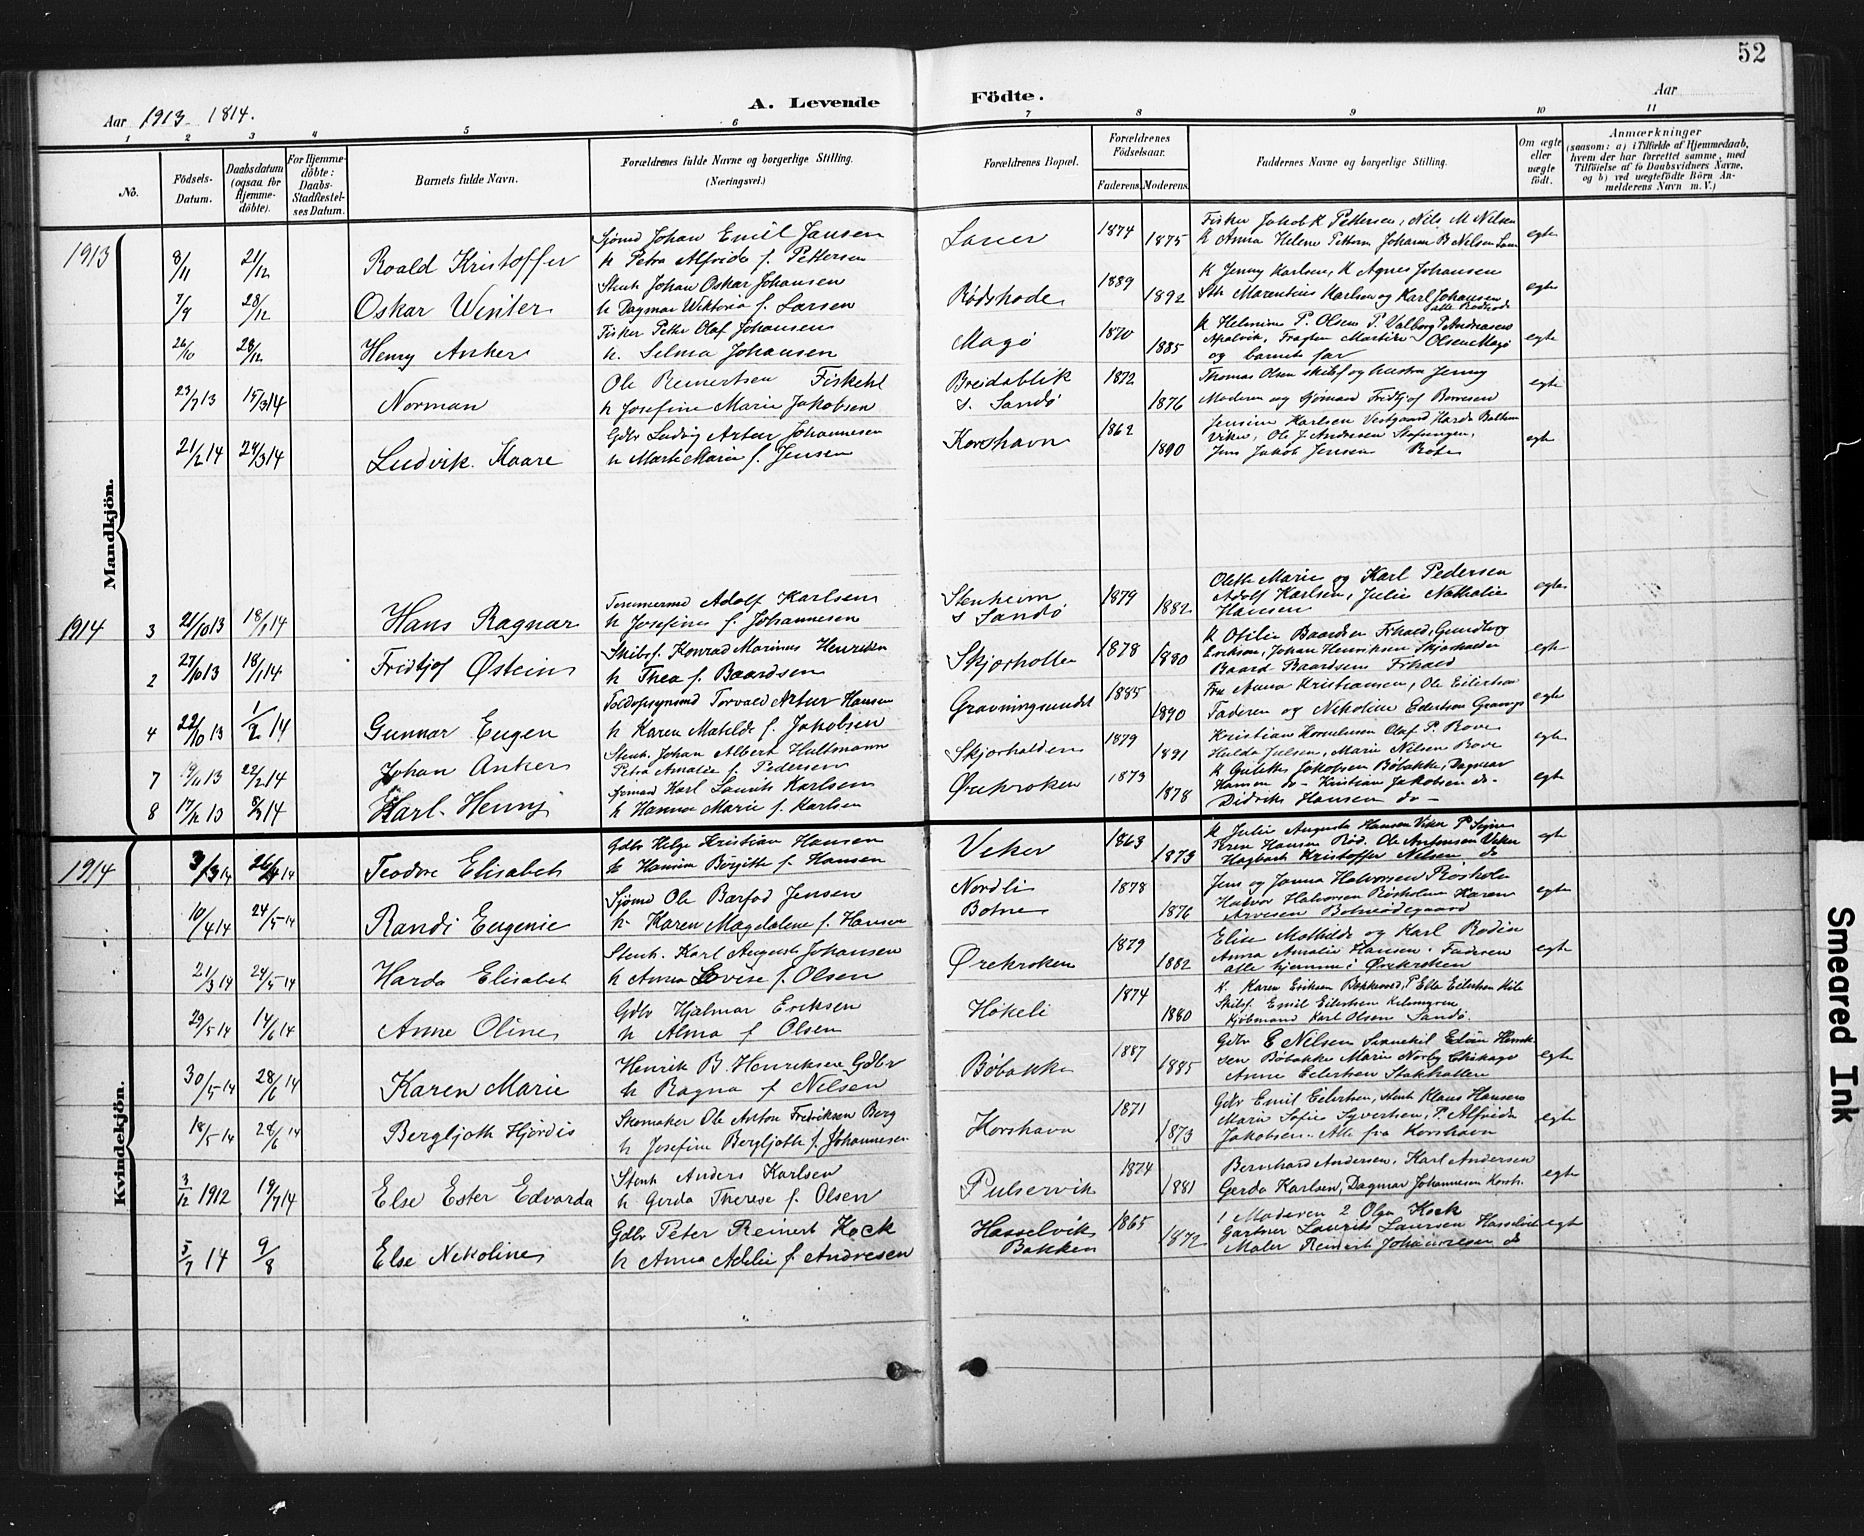 52
Aar 1913- 1814.
A. Levende Födte.
Aar
1 2 3 4 5 6 7 8 9 10 11
No.
Födsels-Datum.
Daabsdatum (ogsaa for Hjemme-döbte).
For Hjemme-döbte: Daabs-Stadfæstel-ses Datum.
Barnets fulde Navn.
Forældrenes fulde Navne og borgerlige Stilling. (Næringsvei.)
Forældrenes Bopæl.
Forældrenes Födselsaar.
Faderens. Moderens.
Faddernes Navne og borgerlige Stilling.
Om ægte eller uægte födt.
Anmærkninger
(saasom: a) i Tilfælde af Hjemmedaab, hvem der har forrettet samme, med Tilföielse af to Daabsvidners Navne, og b) ved uægtefödte Börn An-melderens Navn m. V.)
Mandkjön.
1913 8/11 21/12 Roald Kristoffer
Sjømd Johan Emil Jansen
h Petra Alfride f. Pettersen
Lauer 1874 1875
Fisker Jakob K Pettersen, Nils M Nilsen
K Anna Helene Johanne B Nelsen
egte
7/9 28/12 Oskar Winter
Stenh Johan Oskar Johansen
h Dagmar Wiktoria f. Larsen
Rødshode 1889 1892
K Jenny Karlsen, K Agnes Johansen
Sth Marentius Karlsen og Karl Johansen
alle Rødshode
egte
26/10 28/12 Henry Anker
Fisker Petter Olaf Johansen
h. Selma Johansen
Magø 1870 1885
K Helmine P. Olsen P. Valborg P. Andreasen
Apalvik, Olsen Magø
og barnets far
egte
23/7 13 15/3 14 Norman
Ole Reinertsen Fiskehl
h Josefine Marie Jakobsen
Breidablik
s. Sandø 1872 1876
Thomas Olsen skibsf og hustru Jenny
Moderen og sjømand Fridtjof Borresen
egte
21/2 14 24/3 14 Ludvik Kaare
Gdbr Ludvig Artur Johannesen
h Marte Marie f. Jensen
Korshavn 1862 1890
Jensine Karlsen Vestgaard
Viker, Ole J Andresen
Jens Jakob Jensen
egte
1914 3 21/10 13 18/1 14 Hans Ragnar
Tømmermd Adolf Karlsen
h Josefine f. Johannesen
Stenheim
s Sandø 1879 1882
Olette Marie og Karl Pedersen
Adolf Karlsen, Julie Nathalie
Hansen
egte
2 27/10 13 18/1 14 Fridtjof Østein
Skibsf. Konrad Marinus Henriksen
h Thea f. Baardsen
Skjærhollen 1878 1880
K Otilie Baardsen
Eriksen, Johan Henriksen Skjærhalden
Baard Baardsen
egte
4 22/10 13 1/2 14 Gunnar Eugen
Toldopsynsmd Torvald Artur Hansen
h Karen Matilde f. Jakobsen
Gravningsundet 1885 1890
Fru Anna Kristiansen, Ole Eilertsen
Faderen og Nikoline Eilertsen
egte
7 22/2 14 Johan Anker
Stenh. Johan Albert Hultmann
Petra Amalie f. Pedersen
Skjærhalden 1879 1891
Kristian Kornelius Olaf P. Rove
Hulda Julsen, Marie Nilsen Rove
egte
8 17/12 13 8/3 14 Karl Henry
Sjømand Karl Laurits Karlsen
h Hanna Marie f. Karlsen
Ørekroken 1873 1878
K Jakobsen Bøbakke, Dagmar
Hansen do - Kristian Jakobsen do -
Didrik Hansen do -
egte
Kvindekjön.
1914 3/3 14 26/4 14 Teodore Elisabet
Gdbr Helge Kristian Hansen
h Hansine Birgitte f. Hansen
Veker 1863 1873
K Julie Augusta Hansen Viker P Signe
Hansen Rød. Ole Antonsen Veker
Hagbart Kristoffer Nelsen do
egte
10/4 14 24/5 14 Randi Eugenie
Sjømd Ole Barfod Jensen
h. Karen Magdalene f. Hansen
Nordli
Botne 1878 1876
Jens og Janna Halvorsen Røsholm
Halvor Halvorsen Røsholm Karen
Arvesen Botneødegaard
egte
21/3 14 24/5 14 Harda Elisabet
Stenh. Karl August Johansen
h Anna Lovise f. Olsen
Ørekroken 1879 1882
Elise Mathilde og Karl Bodin
Anna Amalie Hansen. Faderen
alle hjemme i Ørekroken
egte
29/5 14 14/6 14 Anne Oline
Gdbr Hjalmar Eriksen
h Alma f Olsen
Høkeli 1874 1880
K. Karen Eriksen Bakkerød, P Elle Eilertsen
Skibsf. Emil Eilertsen
Kjøbmand Karl Olsen Sandø.
30/5 14 28/6 14 Karen Marie
Henrik B. Henriksen Gdbr
h Ragna f Nilsen
Bøbakke 1887 1885
Gdbr E Nilsen Svanekil Edvin Henrik-
sen Bøbakke Marie Norby Chikago
Anne Eilertsen Stokhollen
egte
18/5 14 28/6 14 Bergljoth Hjørdis
Skomaker Ole Anton Fredriksen Berg
h Josefine Bergljoth f. Johannesen
Korshavn 1871 1873
Gdbr Emil Eilertsen, stenh Klaus Hansen
Marie Sofie Syvertsen, P. Alfride
Jakobsen. Alle fra Korshavn
egte
3/12 1912 19/7 14 Else Ester Edvarda
Stenh Anders Karlsen
h Gerda Therese f. Olsen
Pulservik 1874 1881
Bernhard Andersen, Karl Andersen
Gerda Karlsen, Dagmar Johannesen
egte
5/7 14 9/8 Else Nikoline
Gdbr Peter Reinert Kock
h Anna Adelie f Andresen
Hasselvik
Bakken 1865 1872
1 Moderen 2 Olga Kock
Gartner Laurits Laursen Hasselvik
Maler Reinert Johannesen do
egte
Smeared Ink